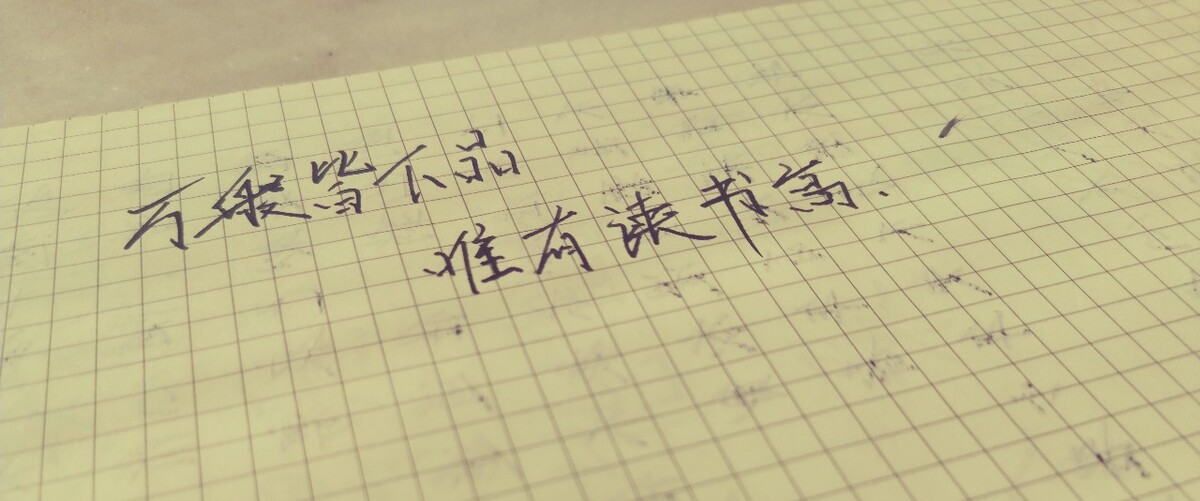 万般皆下品
唯有读书高.